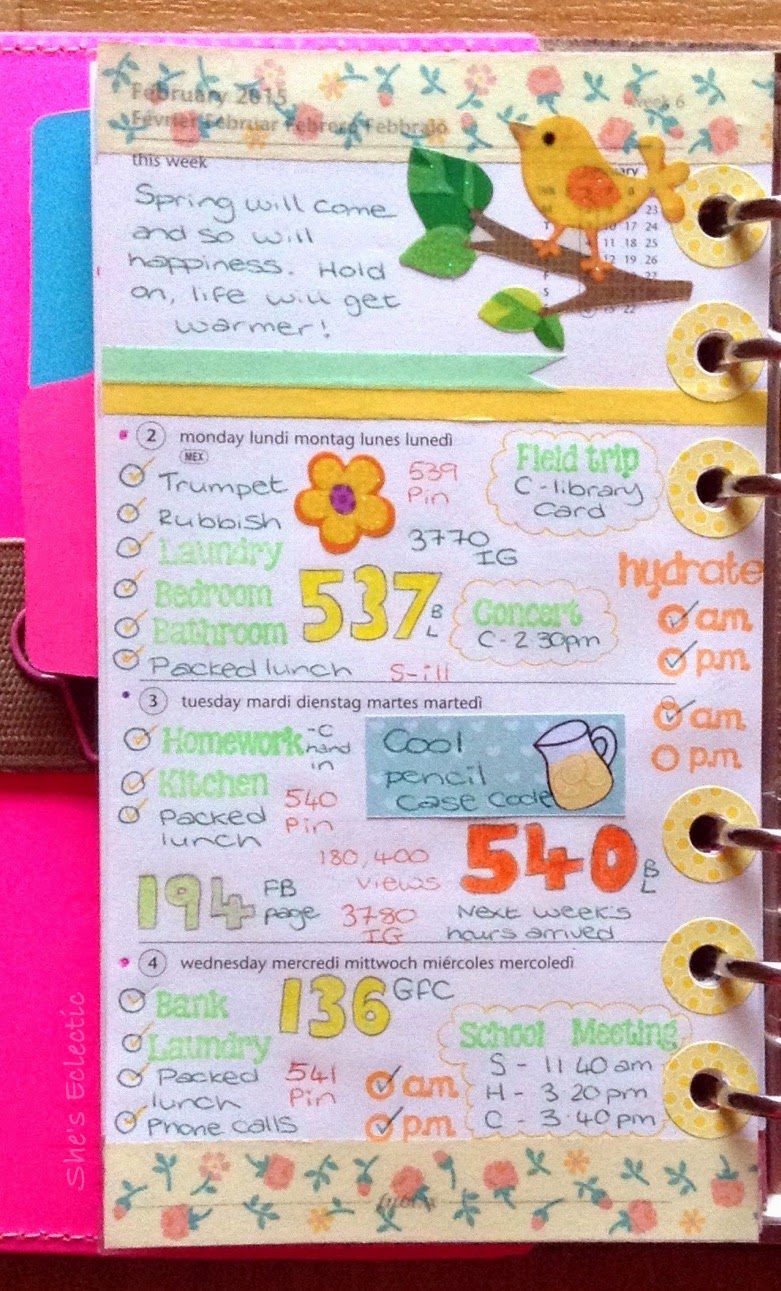 February 2015
week 6
Février Februar Febrero Febbraio
this week
Spring will come
and so will
happiness. Hold
on, life will get
warmer!
23
10 17 24
11 18 25
12 19 26
2 monday lundi montag lunes lunedì
MEX
Trumpet
Rubbish
Laundry
Bedroom
Bathroom
Packed lunch
539
Pin
3770
IG
537
BL
S-ill
Field trip
C-library
Card
Concert
C-2 30pm
hydrate
am
pm
3 tuesday mardi dienstag martes martedì
Homework -C
hand
in
Kitchen
Packed
lunch
540
Pin
Cool
pencil
case code
am
pm
180,400
views
540
BL
194
FB
page
3780
IG
Next week's
hours arrived
4 wednesday mercredi mittwoch miércoles mercoledì
Bank
Laundry
Packed
lunch
Phone calls
136
GFC
541
Pin
am
pm
School Meeting
S - 11 40am
H - 3 20pm
C - 3.40pm
filofax
She's Eclectic